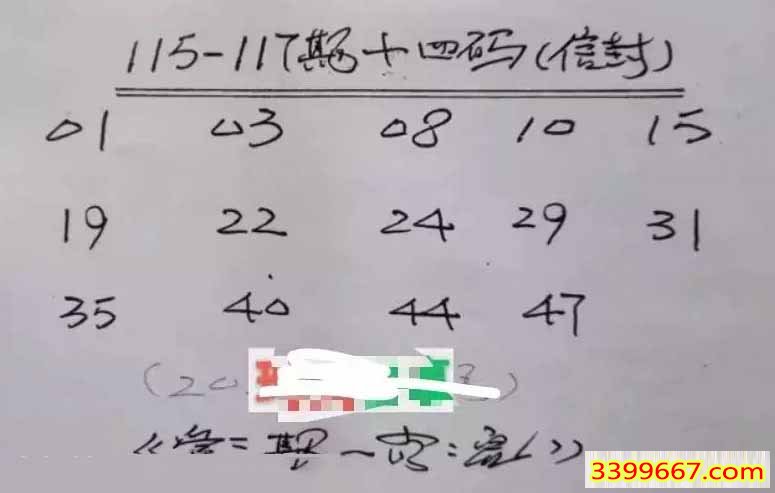 115-117期十四码(信封)
01 03 08 10 15
19 22 24 29 31
35 40 44 47
(20
期一
3399667.com